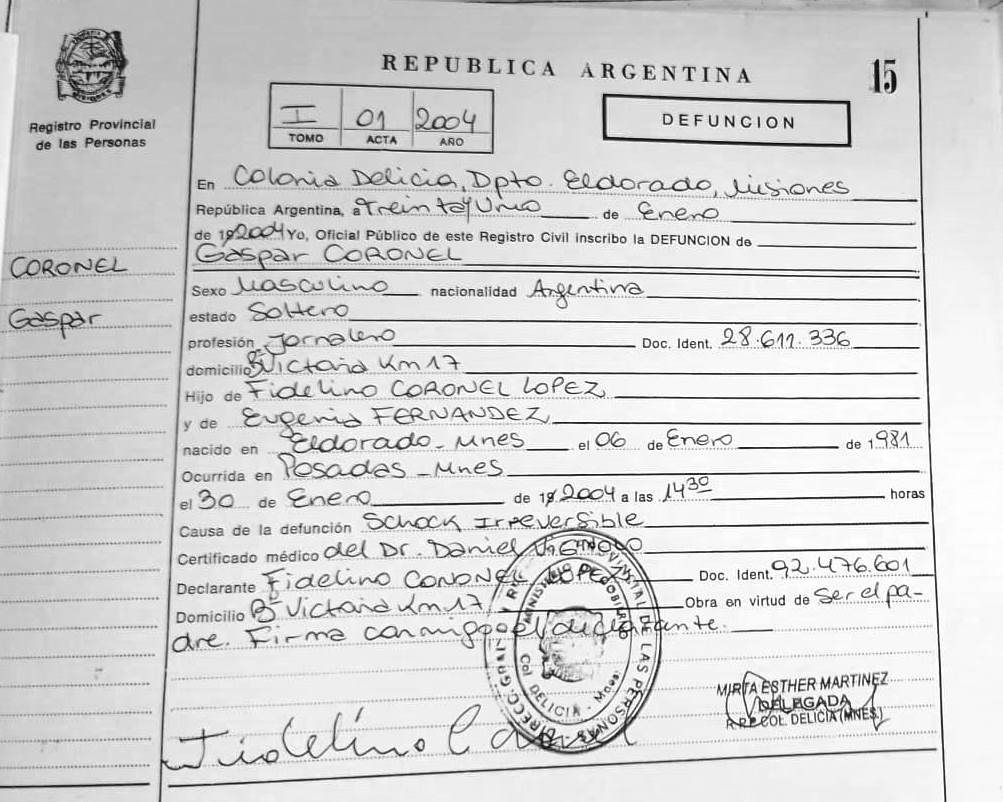 REPUBLICA ARGENTINA
15
Registro Provincial
de las Personas
I 01 2004
TOMO ACTA AÑO
DEFUNCION
En Colonia Delicia, Dpto. Eldorado, Misiones
República Argentina, a Treinta y Uno de Enero
de 19 2004 Yo, Oficial Público de este Registro Civil inscribo la DEFUNCION de
Gaspar CORONEL
CORONEL
Gaspar
Sexo Masculino nacionalidad Argentina
estado Soltero
profesión Jornalero Doc. Ident. 28.611.336
domicilio Bº Victoria Km 17
Hijo de Fidelino CORONEL LOPEZ
y de Eugenia FERNANDEZ
nacido en Eldorado - Mnes el 06 de Enero de 1981
Ocurrida en Posadas - Mnes
el 30 de Enero de 19 2004 a las 14 30 horas
Causa de la defunción Schock Irreversible
Certificado médico del Dr. Daniel
Declarante Fidelino CORONEL LOPEZ Doc. Ident. 92.476.601
Domicilio Bº Victoria Km 17 Obra en virtud de Ser el pa-
dre. Firma conmigo el declarante.
COL DELICIA - Mnes.
LAS PERSONAS
MIRTA ESTHER MARTINEZ
DELEGADA
COL. DELICIA (MNES)
Fidelino